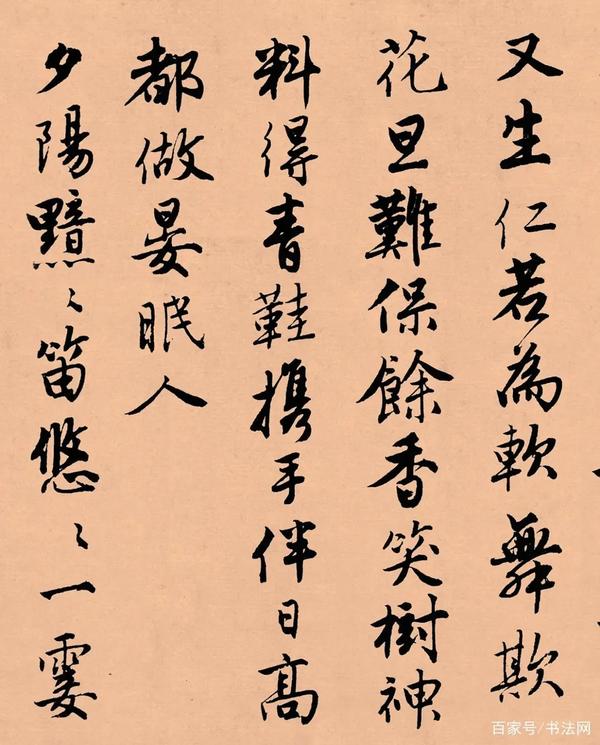 又生仁若為軟舞欺
花旦難保餘香笑樹神
料得青鞋攜手伴日高
都做晏眠人
夕陽黯〻笛悠〻一霎
百家号/书法网